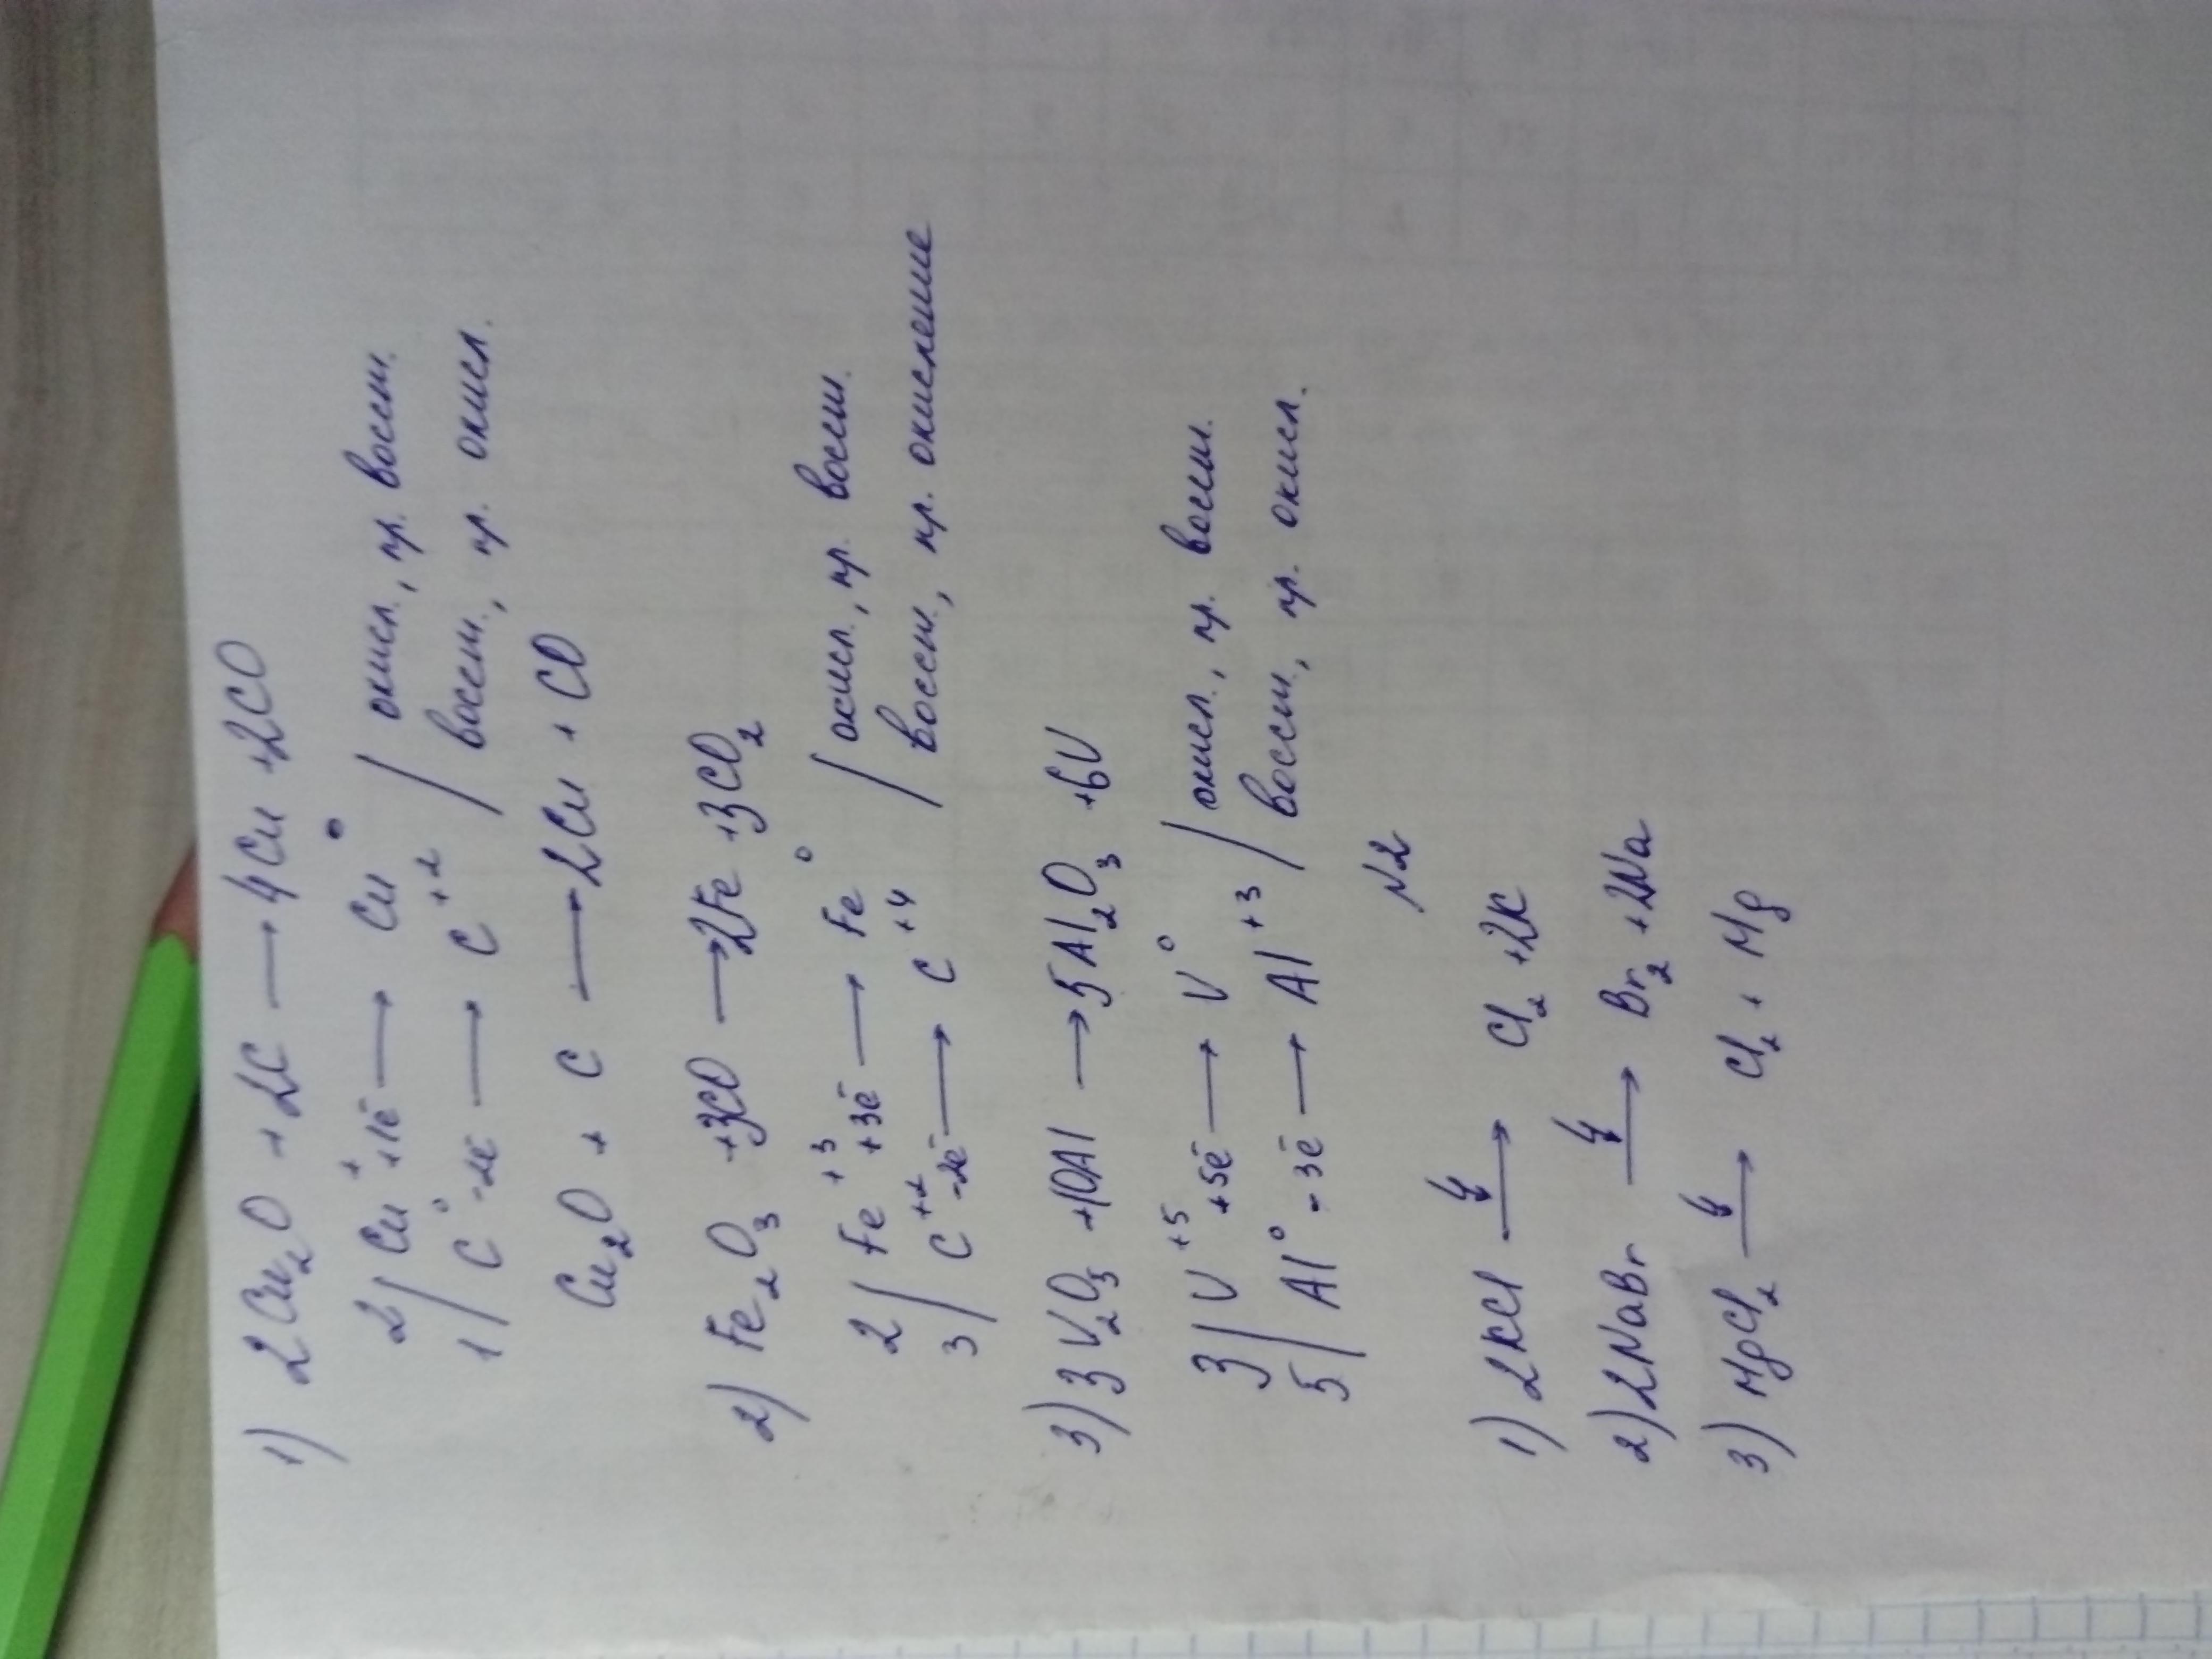 1) 2Cu₂O + 2C → 4Cu + 2CO
2 | Cu⁺ +1ē → Cu⁰ | окисл., пр. восст.
1 | C⁰ -2ē → C⁺² | восст., пр. окисл.
Cu₂O + C → 2Cu + CO
2) Fe₂O₃ + 3CO → 2Fe + 3CO₂
2 | Fe⁺³ +3ē → Fe⁰ | окисл., пр. восст.
3 | C⁺² -2ē → C⁺⁴ | восст., пр. окисление
3) 3V₂O₅ + 10Al → 5Al₂O₃ + 6V
3 | V⁺⁵ +5ē → V⁰ | окисл., пр. восст.
5 | Al⁰ -3ē → Al⁺³ | восст., пр. окисл.
№2
1) 2KCl → Cl₂ + 2K
2) 2NaBr → Br₂ + 2Na
3) MgCl₂ → Cl₂ + Mg